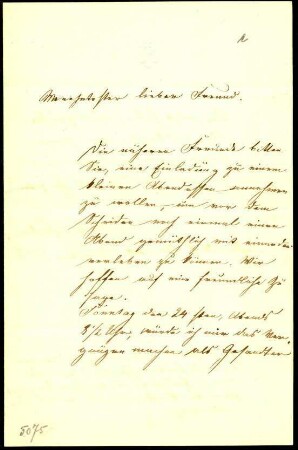 Verehrtester lieber Freund.
Die nähern Freunde bitten
Sie, eine Einladung zu einem
kleinen Abendessen annehmen
zu wollen, um vor dem
Scheiden noch einmal einen
Abend gemüthlich mit einander
verleben zu können. Wir
hoffen auf eine freundliche Zu
sage.
Sonntag den 24 Abends
8½ Uhr, würde ich mir das Ver
gnügen machen als Gesandter
5075